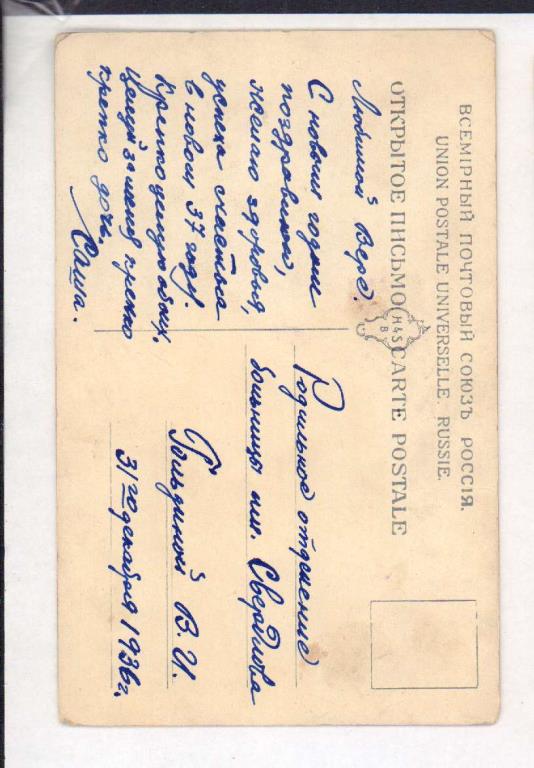 ВСЕМІРНЫЙ ПОЧТОВЫЙ СОЮЗЪ РОССІЯ.
UNION POSTALE UNIVERSELLE. RUSSIE.
ОТКРЫТОЕ ПИСЬМО
CARTE POSTALE
H 4 S
B
Любимой Вере.
С новым годом
поздравляю,
желаю здоровья,
успеха счастья
в новом 37 году.
Крепко целую обоих,
Целуй за меня крепко
крепко дочь.
Саша.
Родильное отделение
больницы им. Свердлова
Гольдиной В. И.
31го декабря 1936 г.